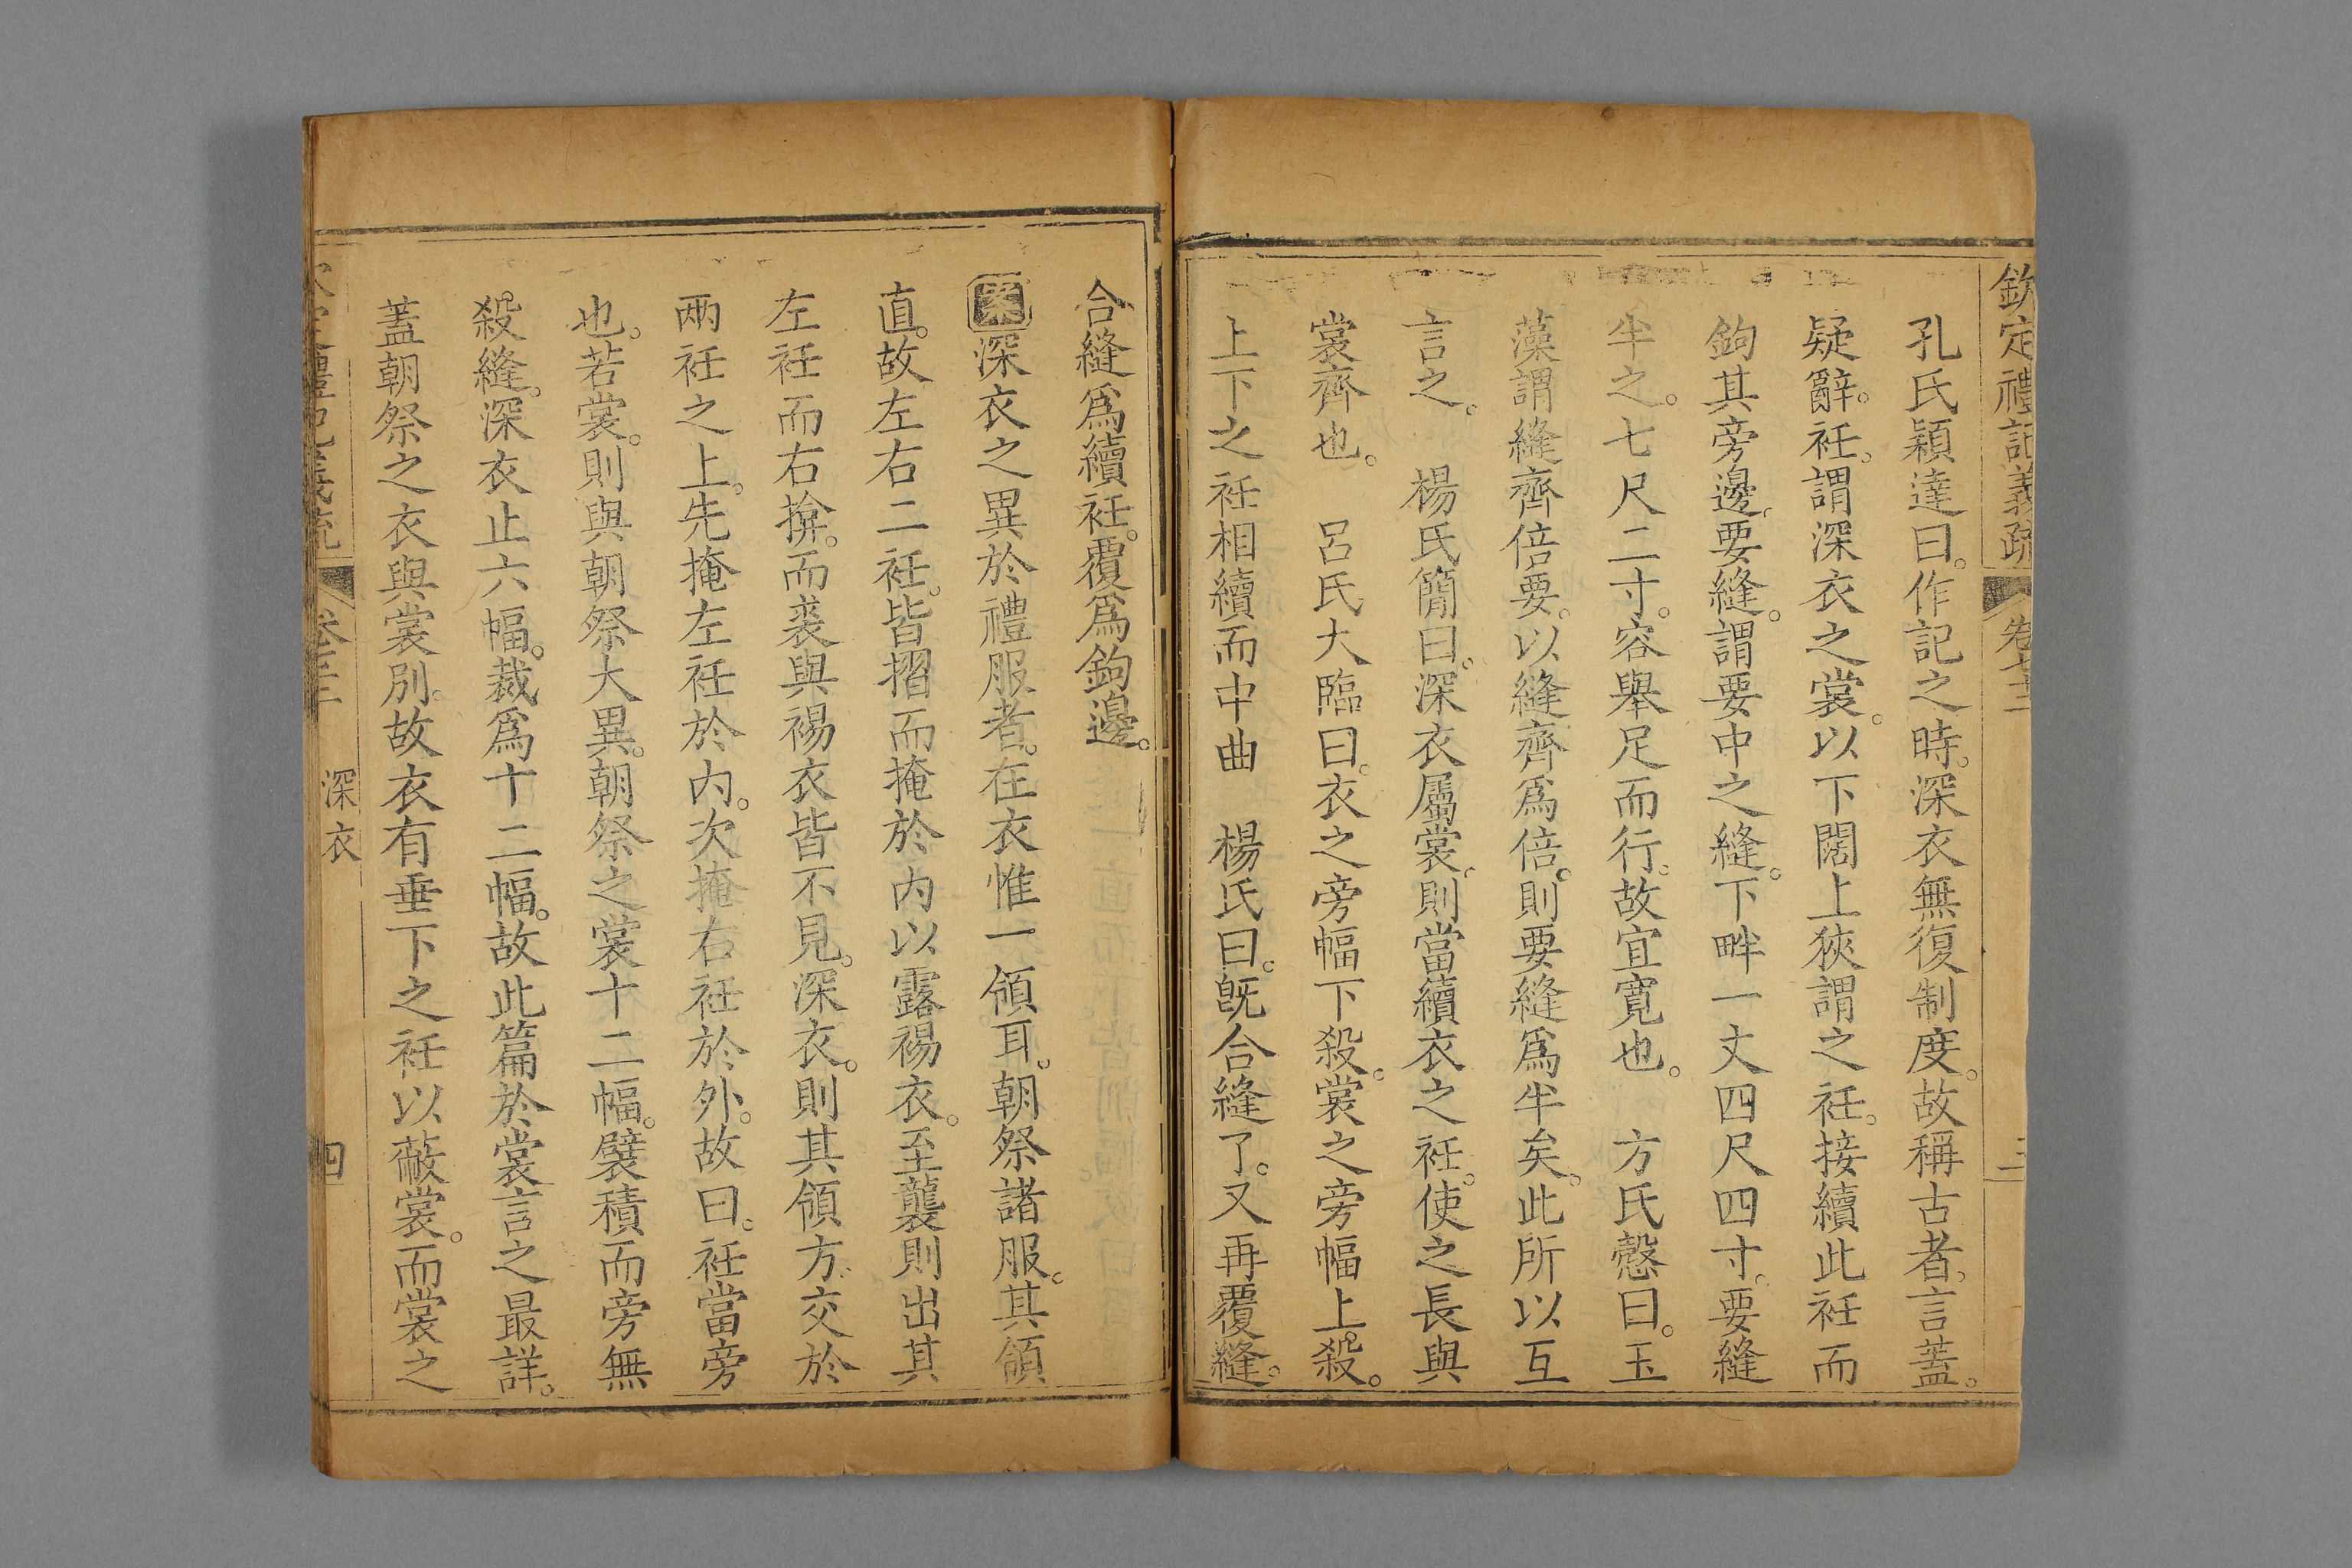 欽定禮記義疏 卷七十二 三
孔氏穎達曰。作記之時。深衣無復制度。故稱古者。言蓋。
疑辭。衽。謂深衣之裳。以下闊上狹謂之衽。接續此衽而
鉤其旁邊。要縫。謂要中之縫。下畔一丈四尺四寸。要縫
半之。七尺二寸。容舉足而行。故宜寬也。 方氏慤曰。玉
藻謂縫齊倍要。以縫齊爲倍。則要縫爲半矣。此所以互
言之。 楊氏簡曰。深衣屬裳。則當續衣之衽。使之長與
裳齊也。 呂氏大臨曰。衣之旁幅下殺。裳之旁幅上殺。
上下之衽相續而中曲 楊氏曰。旣合縫了。又再覆縫。
合縫爲續衽。覆爲鉤邊。
案深衣之異於禮服者。在衣惟一領耳。朝祭諸服。其領
直。故左右二衽。皆摺而掩於內以露裼衣。至襲則出其
左衽而右揜。而裘與裼衣皆不見。深衣。則其領方。交於
兩衽之上。先掩左衽於內。次掩右衽於外。故曰。衽當旁
也。若裳。則與朝祭大異。朝祭之裳十二幅。襞積而旁無
殺縫。深衣止六幅。裁爲十二幅。故此篇於裳言之最詳。
蓋朝祭之衣與裳別。故衣有垂下之衽以蔽裳。而裳之
禮記義疏 深衣 四